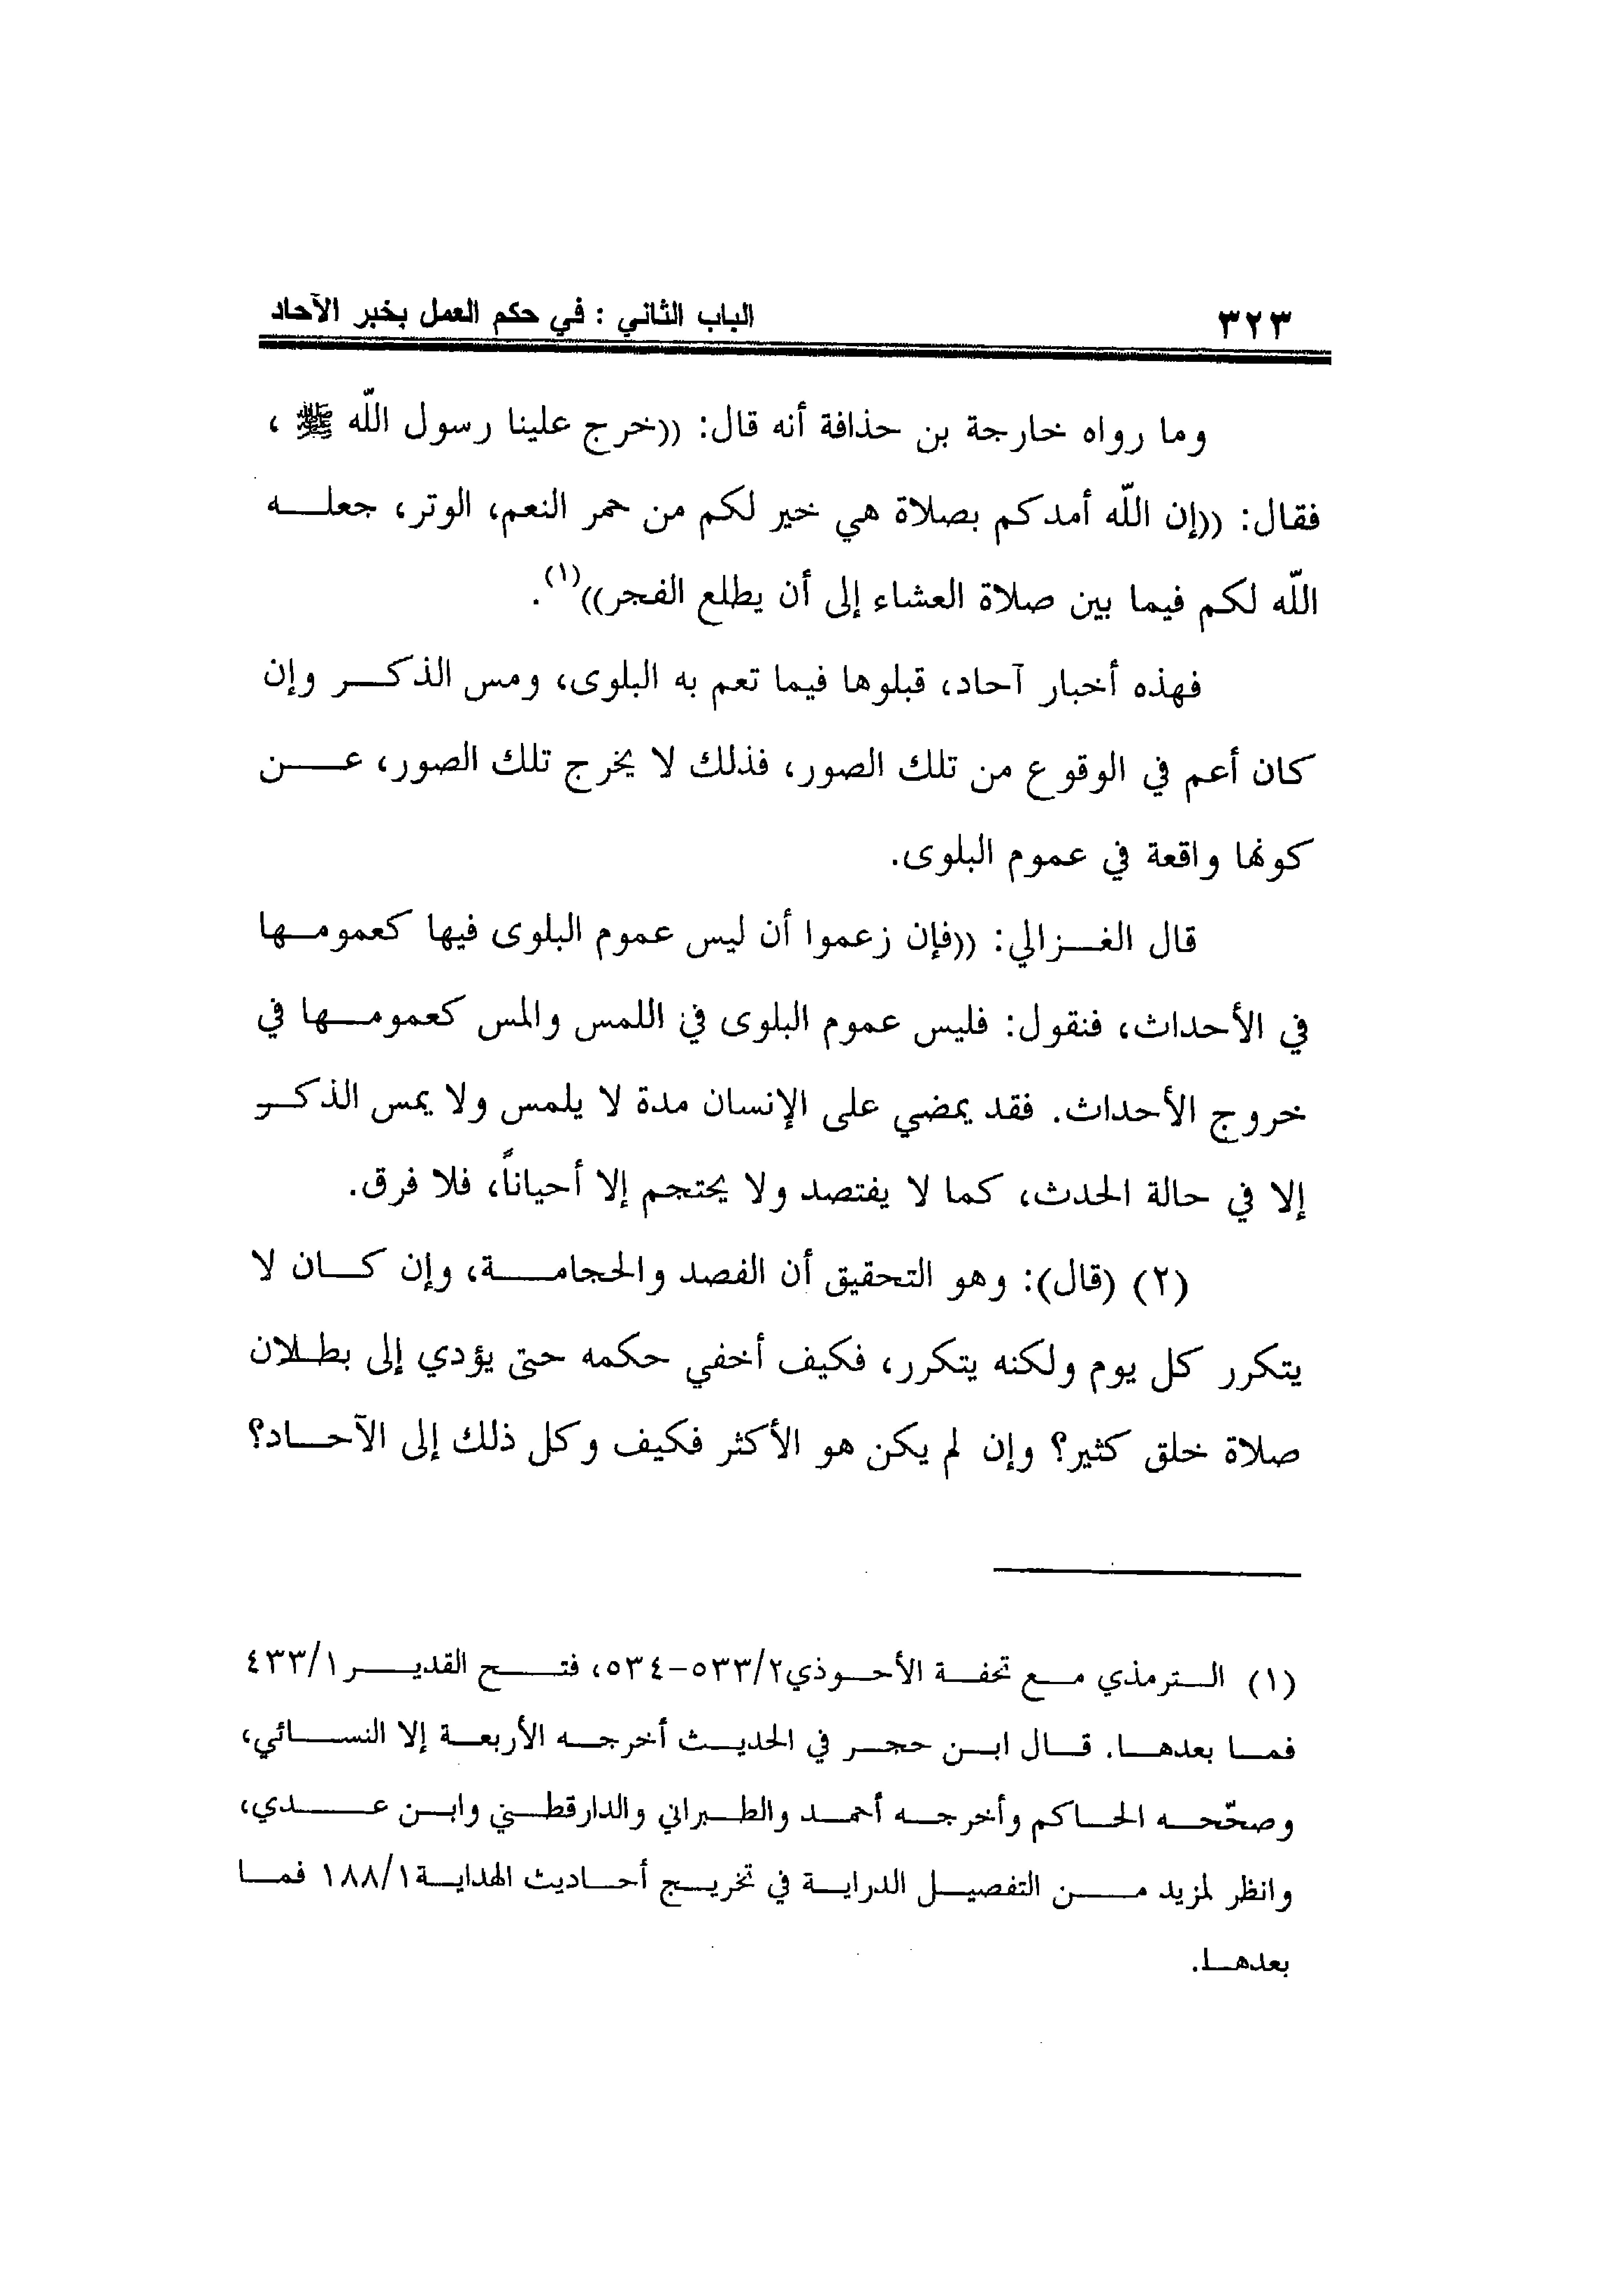 ٣٢٣
الباب الثاني : في حكم العمل بخبر الآحاد
وما رواه خارجة بن حذافة أنه قال: ((خرج علينا رسول اللّه ﷺ ،
فقال: ((إن اللّه أمدكم بصلاة هي خير لكم من حمر النعم، الوتر، جعله
اللّه لكم فيما بين صلاة العشاء إلى أن يطلع الفجر))(١).
فهذه أخبار آحاد، قبلوها فيما تعم به البلوى، ومس الذكر وإن
كان أعم في الوقوع من تلك الصور، فذلك لا يخرج تلك الصور، عن
كونها واقعة في عموم البلوى.
قال الغزالي: ((فإن زعموا أن ليس عموم البلوى فيها كعمومها
في الأحداث، فنقول: فليس عموم البلوى في اللمس والمس كعمومها في
خروج الأحداث. فقد يمضي على الإنسان مدة لا يلمس ولا يمس الذكر
إلا في حالة الحدث، كما لا يفتصد ولا يحتجم إلا أحياناً، فلا فرق.
(٢) (قال): وهو التحقيق أن الفصد والحجامة، وإن كان لا
يتكرر كل يوم ولكنه يتكرر، فكيف أخفي حكمه حتى يؤدي إلى بطلان
صلاة خلق كثير؟ وإن لم يكن هو الأكثر فكيف وكل ذلك إلى الآحاد؟
(١) الترمذي مع تحفة الأحوذي٥٣٣/٢-٥٣٤، فتح القدير٤٣٣/١
فما بعدها. قال ابن حجر في الحديث أخرجه الأربعة إلا النسائي،
وصحّحه الحاكم وأخرجه أحمد والطبراني والدارقطني وابن عدي،
وانظر لمزيد من التفصيل الدراية في تخريج أحاديث الهداية١٨٨/١ فما
بعدها.